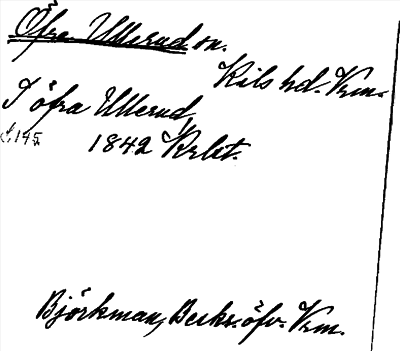 Öfra Ullerud sn.
Kils hd. Vrm.
I öfra Ullerud,
s. 145. 1842 Krlst.
Björkman, Beskr. öfv. Vrm.